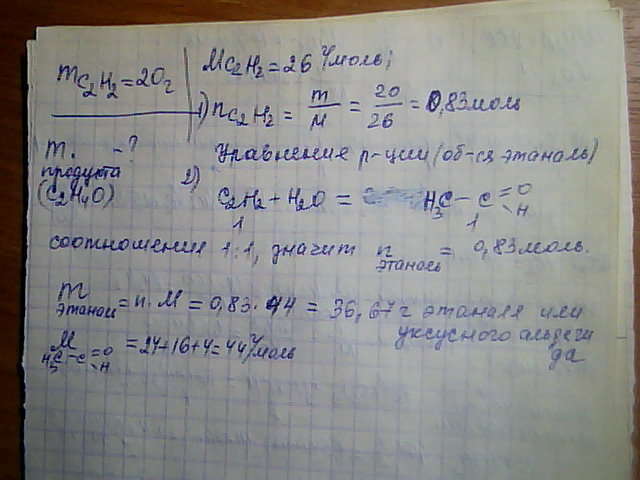 m C₂H₂ = 20г
M C₂H₂ = 26 г/моль;
1) n C₂H₂ = m/M = 20/26 = 0,83 моль
m. - ?
продукта
(C₂H₄O)
Уравнение р-ции (об-ся этаналь)
2) C₂H₂ + H₂O = H₃C - C =O - H
1 1
соотношения 1:1, значит n этаналь = 0,83 моль.
m этанали = n · M = 0,83 · 44 = 36,67 г этаналя или
уксусного альдеги
да
M H₃C - C =O - H = 24+16+4=44 г/моль